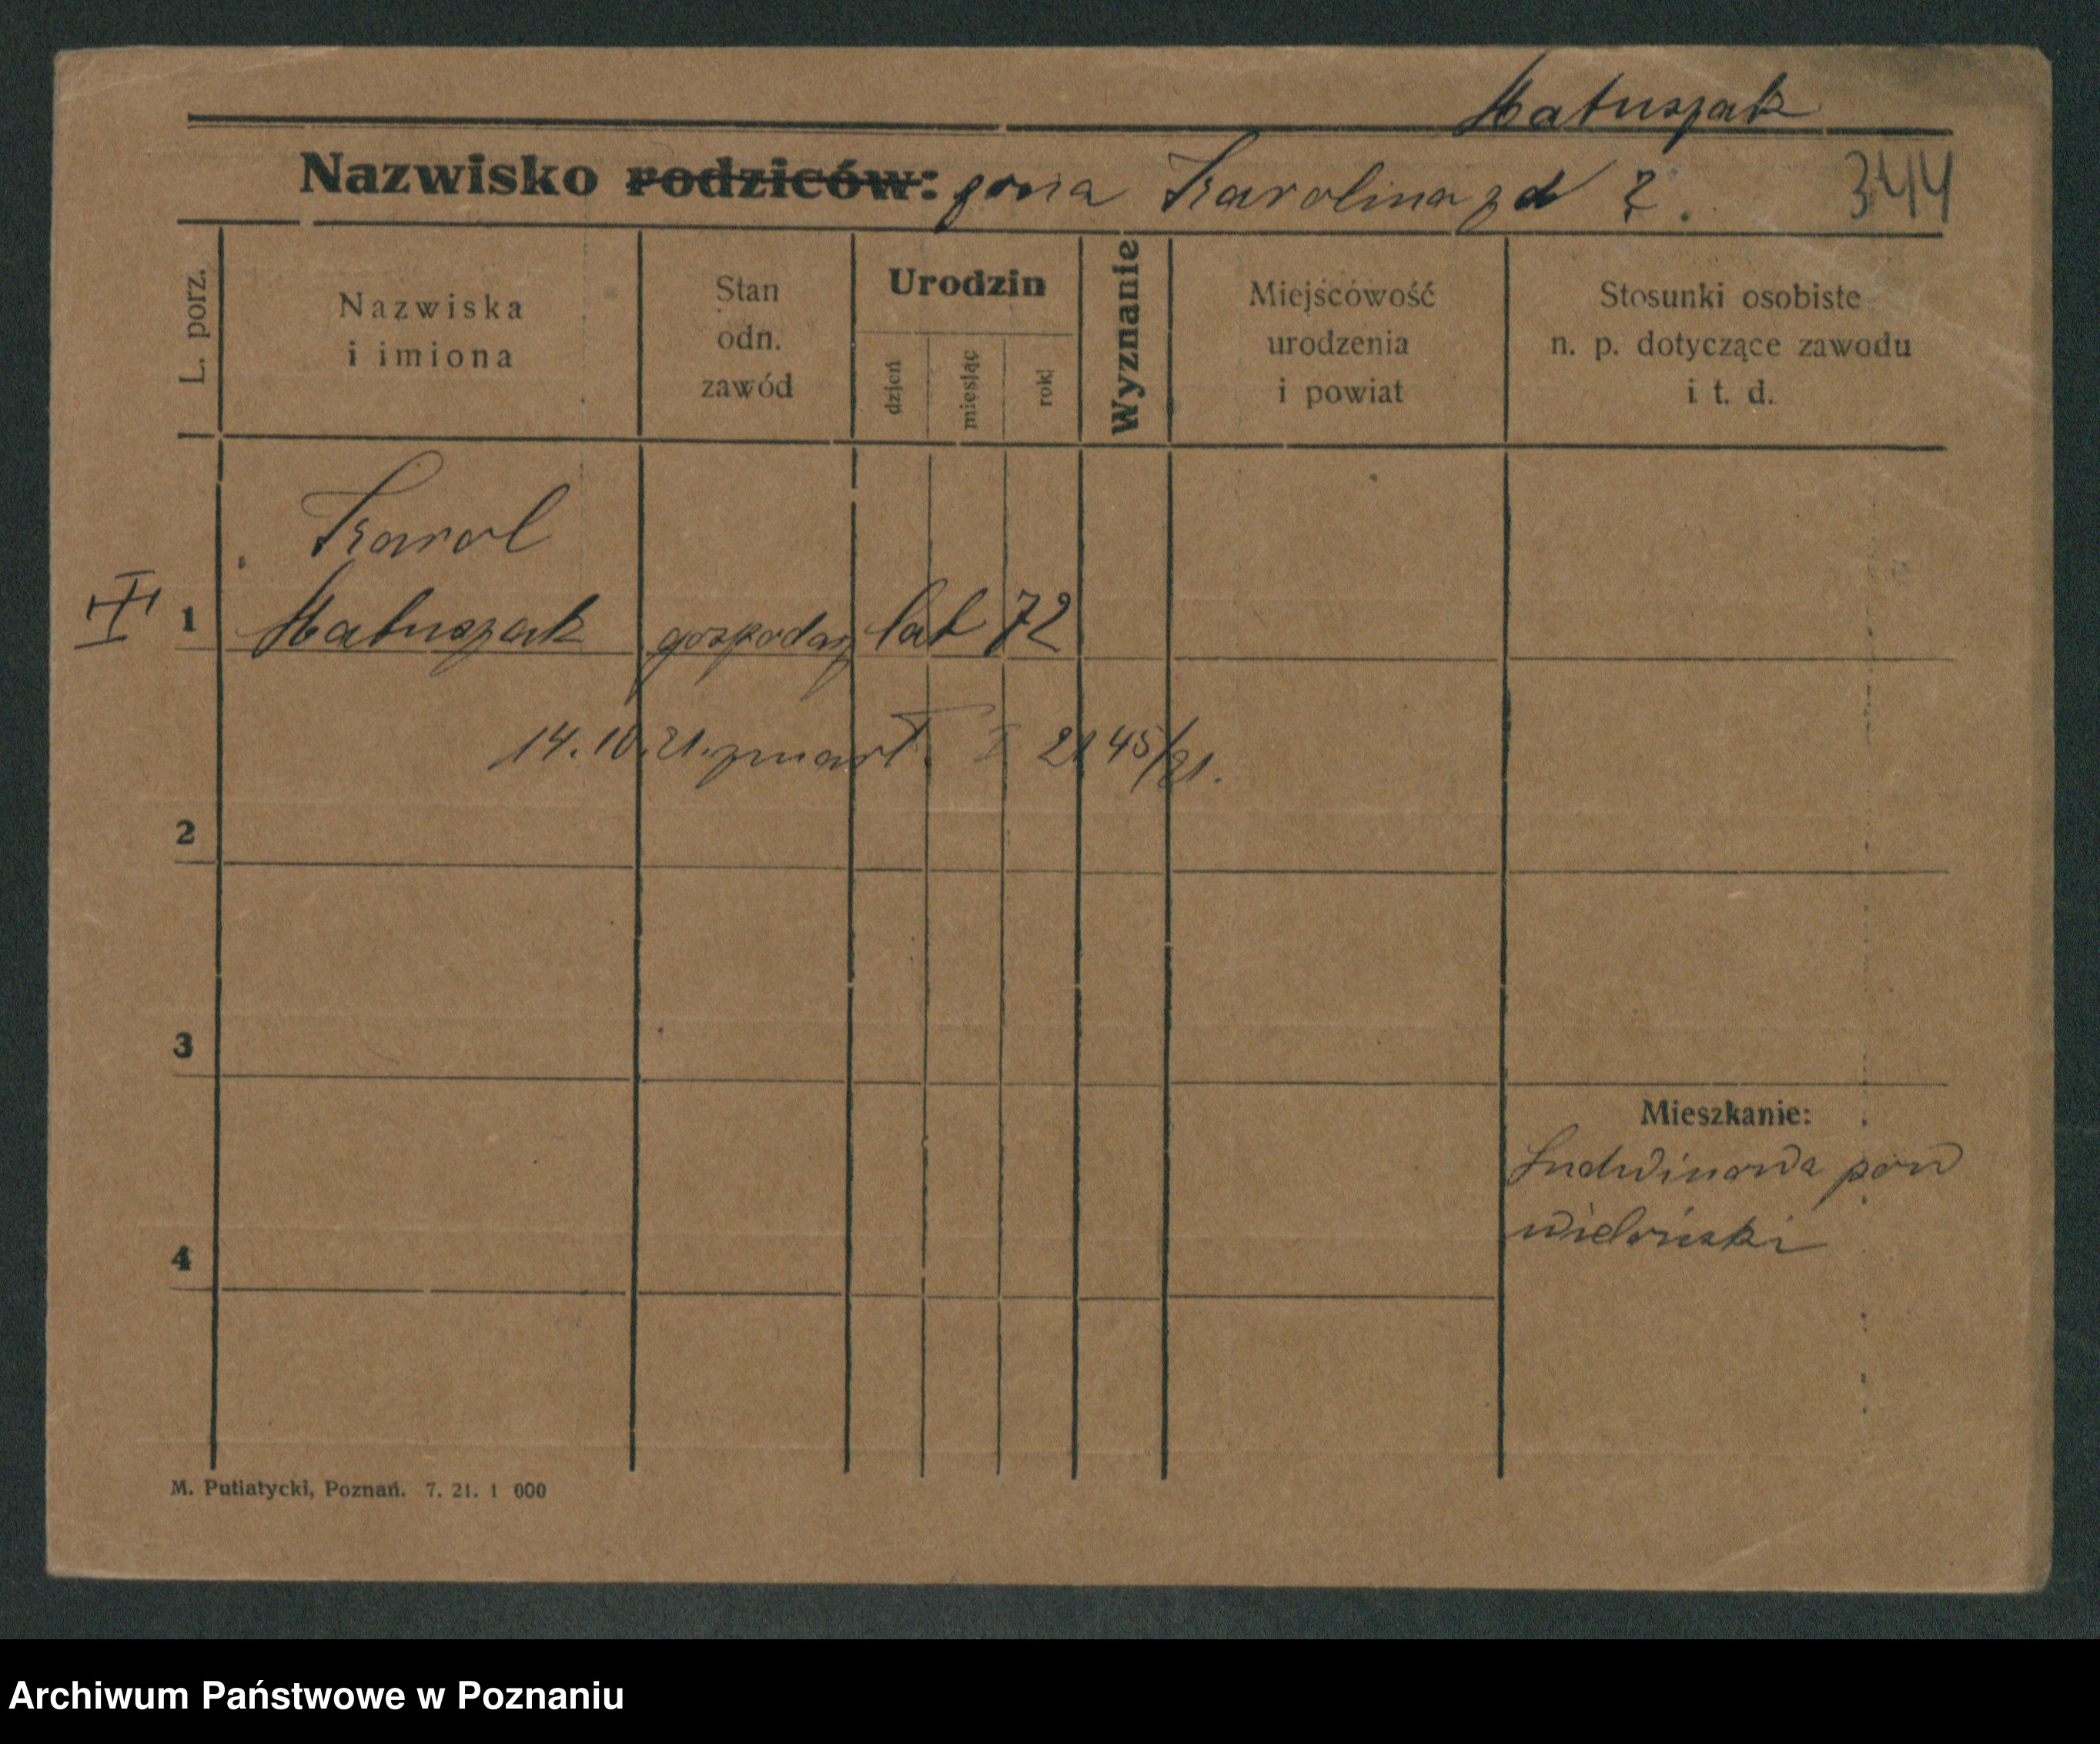 Matuszak
Nazwisko rodziców: żona Karolina zd ?. 344
L. porz.
Nazwiska
i imiona
Stan
odn.
zawód
Urodzin
dzień
miesiąc
rok
Wyznanie
Miejscowość
urodzenia
i powiat
Stosunki osobiste
n. p. dotyczące zawodu
i t. d.
Karol
1 Matuszak gospodarz lat 72
14.10.21. zmarł. 2145/21.
2
3
Mieszkanie:
pow
wieluński
4
M. Putiatycki, Poznań. 7. 21. 1 000
Archiwum Państwowe w Poznaniu